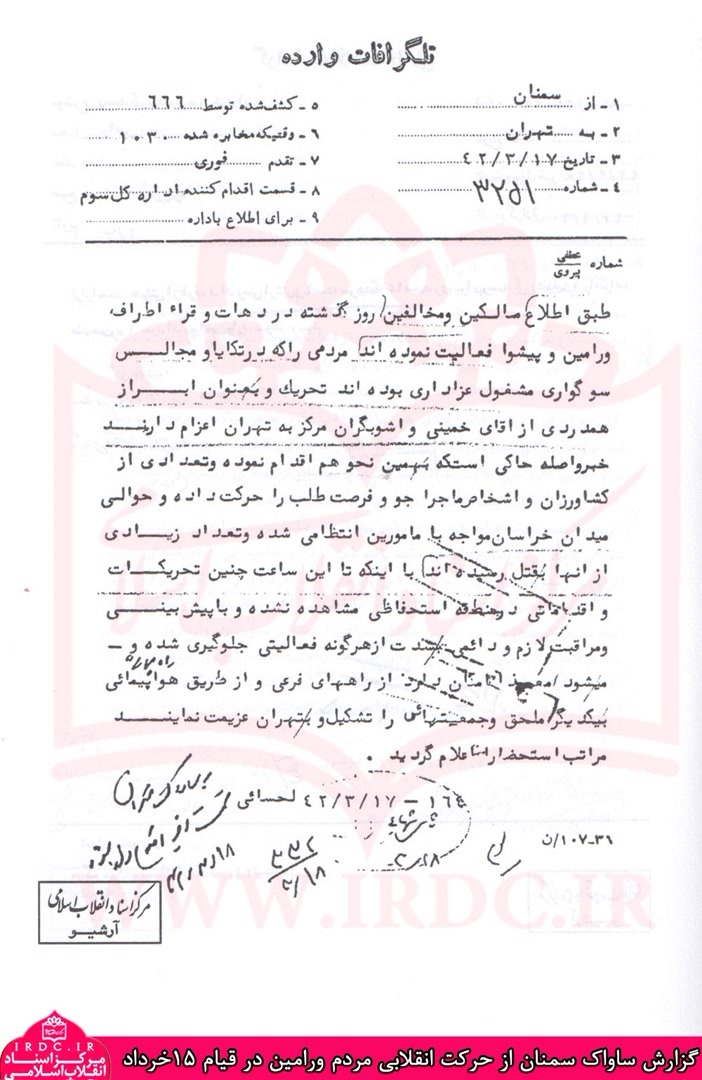 تلگرافات وارده
۱ - از سمنان
۲ - به تهران
۳ - تاریخ ۴۲/۳/۱۷
۴ - شماره
۵ - کشف شده توسط ۶۶۶
۶ - وقتیکه مخابره شده ۱۰۳۰
۷ - تقدم فوری
۸ - قسمت اقدام کننده اداره کل سوم
۹ - برای اطلاع باداره
شماره عطفی پیروی
طبق اطلاع مالکین ومخالفین روز گذشته در دهات و قراء اطراف
ورامین و پیشوا فعالیت نموده اند مردمی راکه درتکایا و مجالس
سوگواری مشغول عزاداری بوده اند تحریك و بعنوان ابراز
همدردی از اقای خمینی و اشوبگران مرکز به تهران اعزام دارند
خبرواصله حاکی استکه بهمین نحو هم اقدام نموده وتعدادی از
کشاورزان و اشخاص ماجرا جو و فرصت طلب را حرکت داده و حوالی
میدان خراسان مواجه با مامورین انتظامی شده وتعداد زیادی
از انها بقتل رسیده اند با اینکه تا این ساعت چنین تحریکات
و اقداماتی درمنطقه استحفاظی مشاهده نشده و باپیش بینی
ومراقبت لازم و دائمی بشدت از هرگونه فعالیتی جلوگیری شده و -
میشود امکان دارد از راههای فرعی و از طریق هواپیمائی
بیکدیگر ملحق وجمعیتهائی را تشکیل و بتهران عزیمت نمایند
مراتب استحضارا اعلام گردید .
۱۶۴ - ۴۲/۳/۱۷ لحسائی
۳۱-۱۰۷/ن
مرکز اسناد انقلاب اسلامی
آرشیو
WWW.IRDC.IR
IRDC.IR
مرکز اسناد
انقلاب اسلامی
گزارش ساواک سمنان از حرکت انقلابی مردم ورامین در قیام ۱۵خرداد